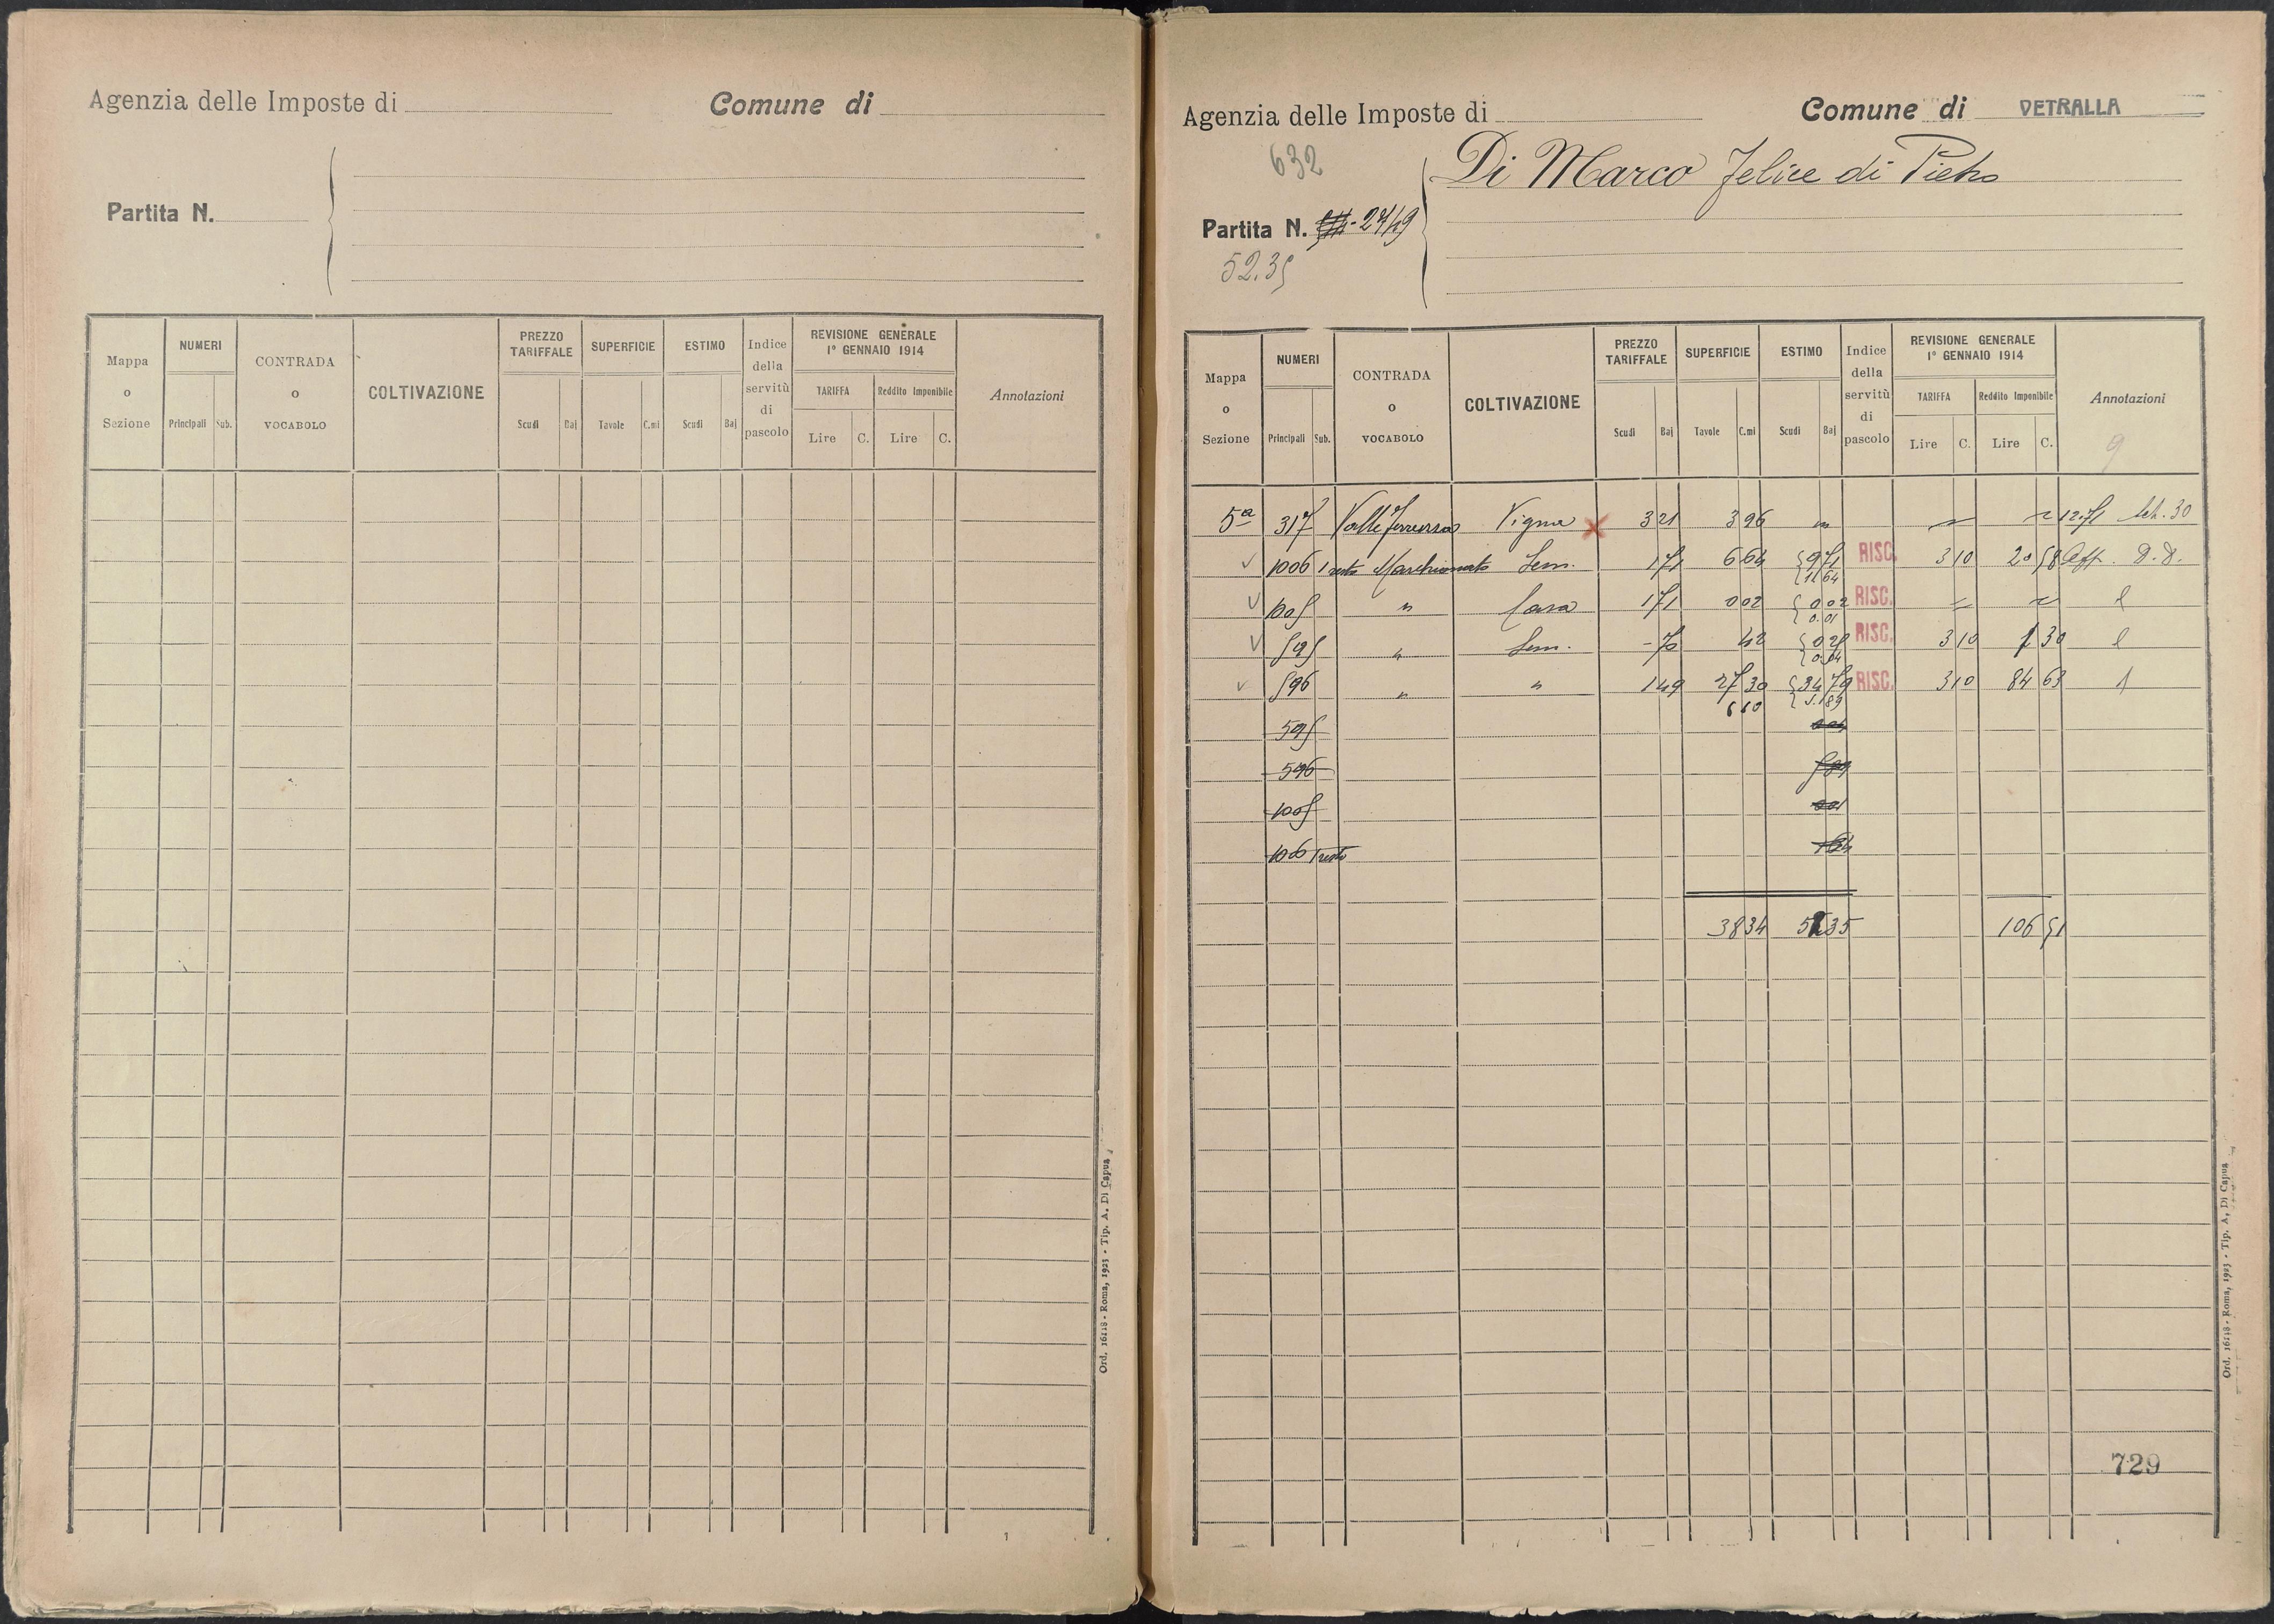 Agenzia delle Imposte di
Comune di
Partita N.
Mappa o Sezione
NUMERI
Principali Sub.
CONTRADA o VOCABOLO
COLTIVAZIONE
PREZZO TARIFFALE
Scudi Baj
SUPERFICIE
Tavole C.mi
ESTIMO
Scudi Baj
Indice della servitù di pascolo
REVISIONE GENERALE
1° GENNAIO 1914
TARIFFA
Lire C.
Reddito Imponibile
Lire C.
Annotazioni
Ord. 16118 - Roma, 1923 - Tip. A. Di Capua
Agenzia delle Imposte di
Comune di VETRALLA
632
Di Marco Felice di Pietro
Partita N. 2749
52.35
Mappa o Sezione
NUMERI
Principali Sub.
CONTRADA o VOCABOLO
COLTIVAZIONE
PREZZO TARIFFALE
Scudi Baj
SUPERFICIE
Tavole C.mi
ESTIMO
Scudi Baj
Indice della servitù di pascolo
REVISIONE GENERALE
1° GENNAIO 1914
TARIFFA
Lire C.
Reddito Imponibile
Lire C.
Annotazioni
9
5a 317 Vigna 3 21 3 96 " 30
1006 1 resto Marchionato Sem. 1 71 6 64 RISC. 3 10 20 58
1 64
1005 " Casa 1 71 0 02 0 02 RISC.
0.01
595 " Sem. 42 RISC. 3 10 1 30
0.04
596 " " 1 49 27 30 34 79 RISC. 3 10 84 63
6 10 5.89
595
596
1005
1006 1 resto
38 34 52 35 106 51
729
Ord. 16118 - Roma, 1923 - Tip. A. Di Capua